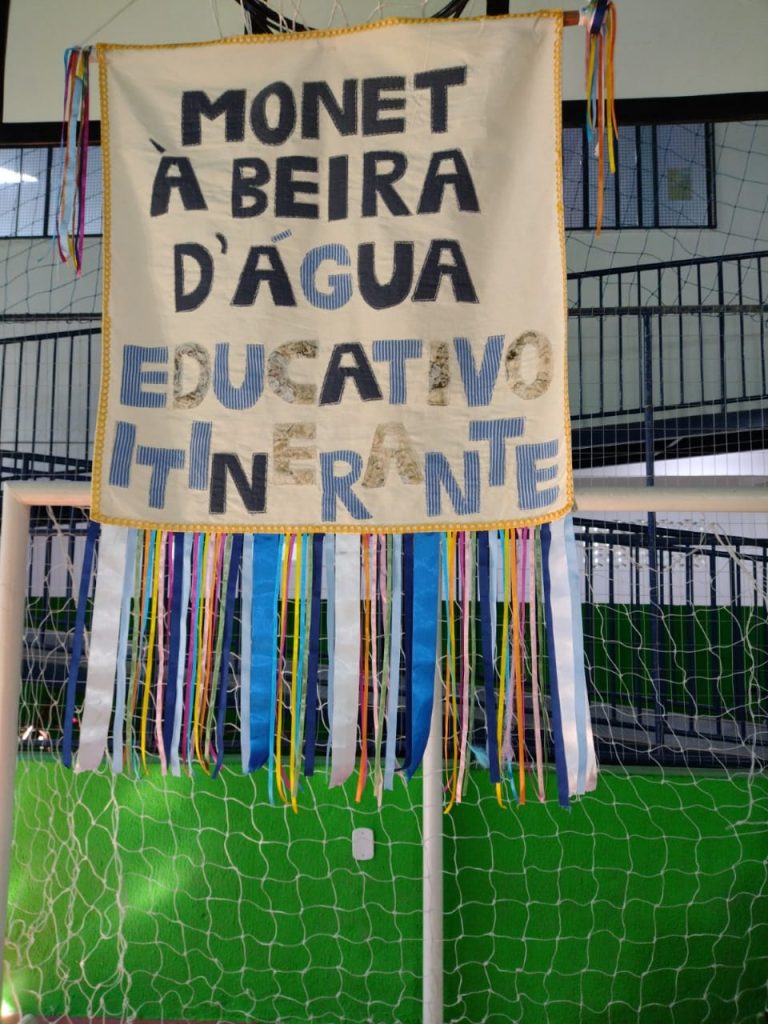 MONET
À BEIRA
D'ÁGUA
EDUCATIVO
ITINERANTE